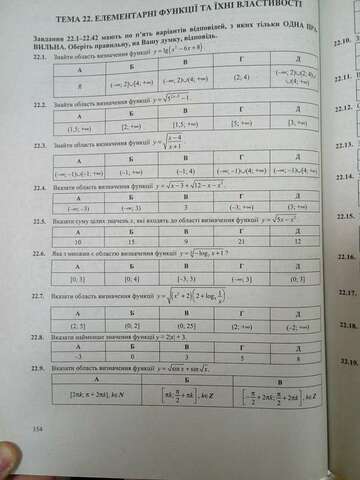 ТЕМА 22. ЕЛЕМЕНТАРНІ ФУНКЦІЇ ТА ЇХНІ ВЛАСТИВОСТІ
Завдання 22.1–22.42 мають по п'ять варіантів відповідей, з яких тільки ОДНА ПРА-
ВИЛЬНА. Оберіть правильну, на Вашу думку, відповідь.
22.1. Знайти область визначення функції y = lg(x² − 6x + 8)
А Б В Г Д
(−∞; 2)∪(4; +∞) (2; 4)
22.2. Знайти область визначення функції
А Б В Г Д
(1,5; +∞) [2; +∞) [1,5; +∞) [5; +∞) [3; +∞)
22.3. Знайти область визначення функції y = √((x−4)/(x+1))
А Б В Г Д
(−1; +∞) (−1; 4)
22.4. Вказати область визначення функції y = √(x−3) + √(12−x−x²)
А Б В Г Д
(−∞; −3) (−∞; 3) 3 (−3; +∞) (3; +∞)
22.5. Вказати суму цілих значень x, які входять до області визначення функції y = √(5x − x²)
А Б В Г Д
10 15 9 21 12
22.6. Яка з множин є областю визначення функції
А Б В Г Д
[0; 3] [0; 4] [−3; 3) (−∞; 3] (0; 3]
22.7. Вказати область визначення функції
А Б В Г Д
(2; 5] (0; 2] (0; 25] [2; +∞) (−2; +∞)
22.8. Вказати найменше значення функції y = 2|x| + 3.
А Б В Г Д
−3 0 3 5 8
22.9. Вказати область визначення функції y = √(sin x + sin √x).
А Б В
[2πk; π + 2πk], k∈N [πk; π/2 + πk], k∈Z [−π/2 + 2πk; π/2 + 2πk], k∈Z
154
22.10.
22.11.
22.12
22.13
22.14
22.15.
22.16.
22.17.
22.18.
22.19.